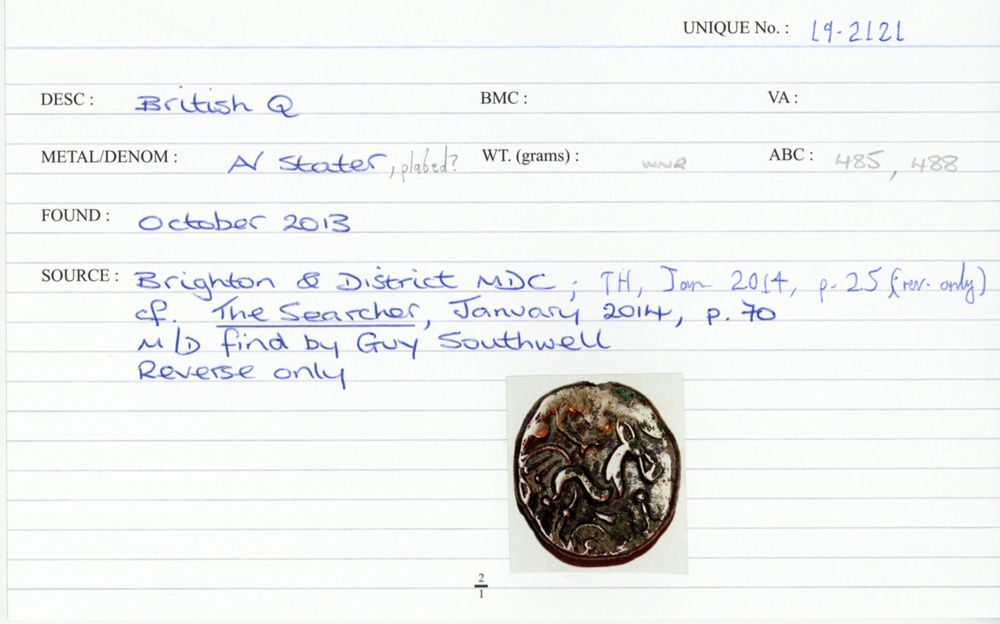 UNIQUE No. : 19-2121
DESC : British Q BMC : VA :
METAL/DENOM : N Stater, plabed? WT. (grams) : WNR ABC : 485, 488
FOUND : October 2013
SOURCE : Brighton & District MDC ; TH, Jan 2014, p. 25 (rev. only)
cf. The Searcher, January 2014, p. 70
M/D find by Guy Southwell
Reverse only
2
1